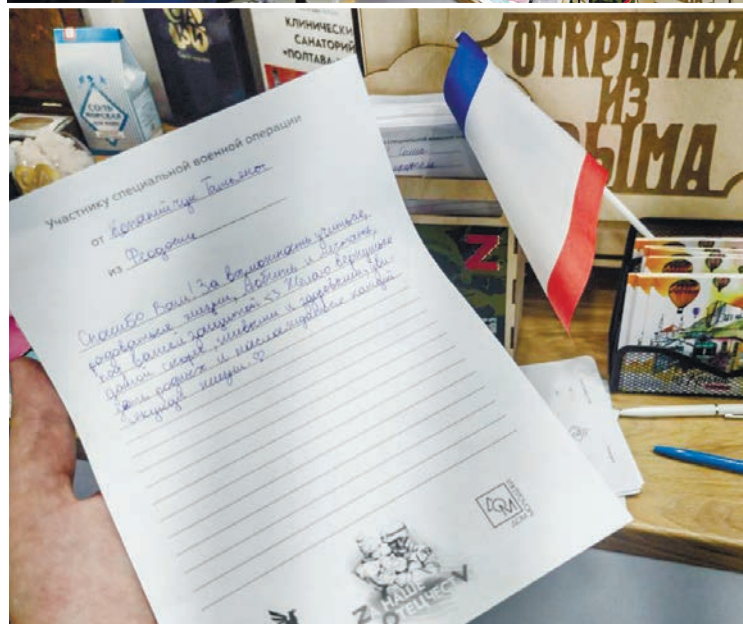 КЛИНИЧЕСКИ
САНАТОРИЙ
«ПОЛТАВА-
СОЛЬ
МОРСКАЯ
ОТКРЫТКА
ИЗ
РЫМА
Z
Участнику специальной военной операции
от Копанийчук Татьяны
из Феодосии
Спасибо Вам! За возможность учиться,
радоваться жизни, любить и мечтать
под вашей защитой <3 Желаю вернуться
домой скорее, живыми и здоровыми,
родных и наслаждаться каждой
секундой жизни. ♡
ZА НАШЕ
ОТЕЧЕСТV